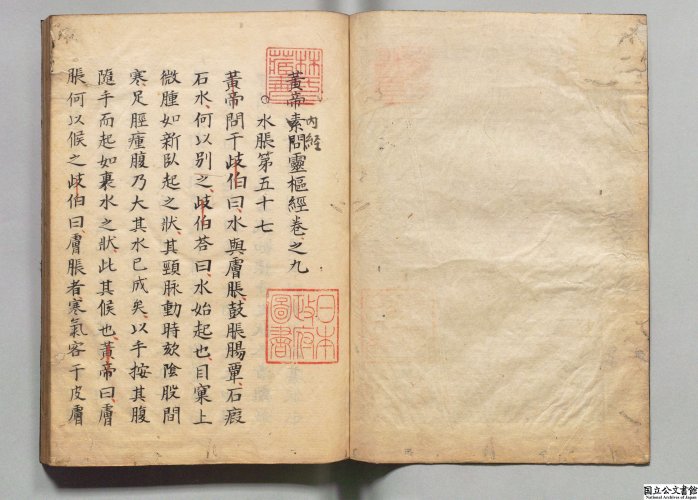 黃帝素問靈樞經卷之九
内経
水脹第五十七
黃帝問于歧伯曰水與膚脹鼓脹腸覃石瘕
石水何以別之歧伯荅曰水始起也目窠上
微腫如新臥起之狀其頸脉動時欬陰股間
寒足脛瘇腹乃大其水已成矣以手按其腹
隨手而起如裹水之狀此其候也黃帝曰膚
脹何以候之歧伯曰膚脹者寒氣客于皮膚
日本
政府
圖書
国立公文書館
National Archives of Japan